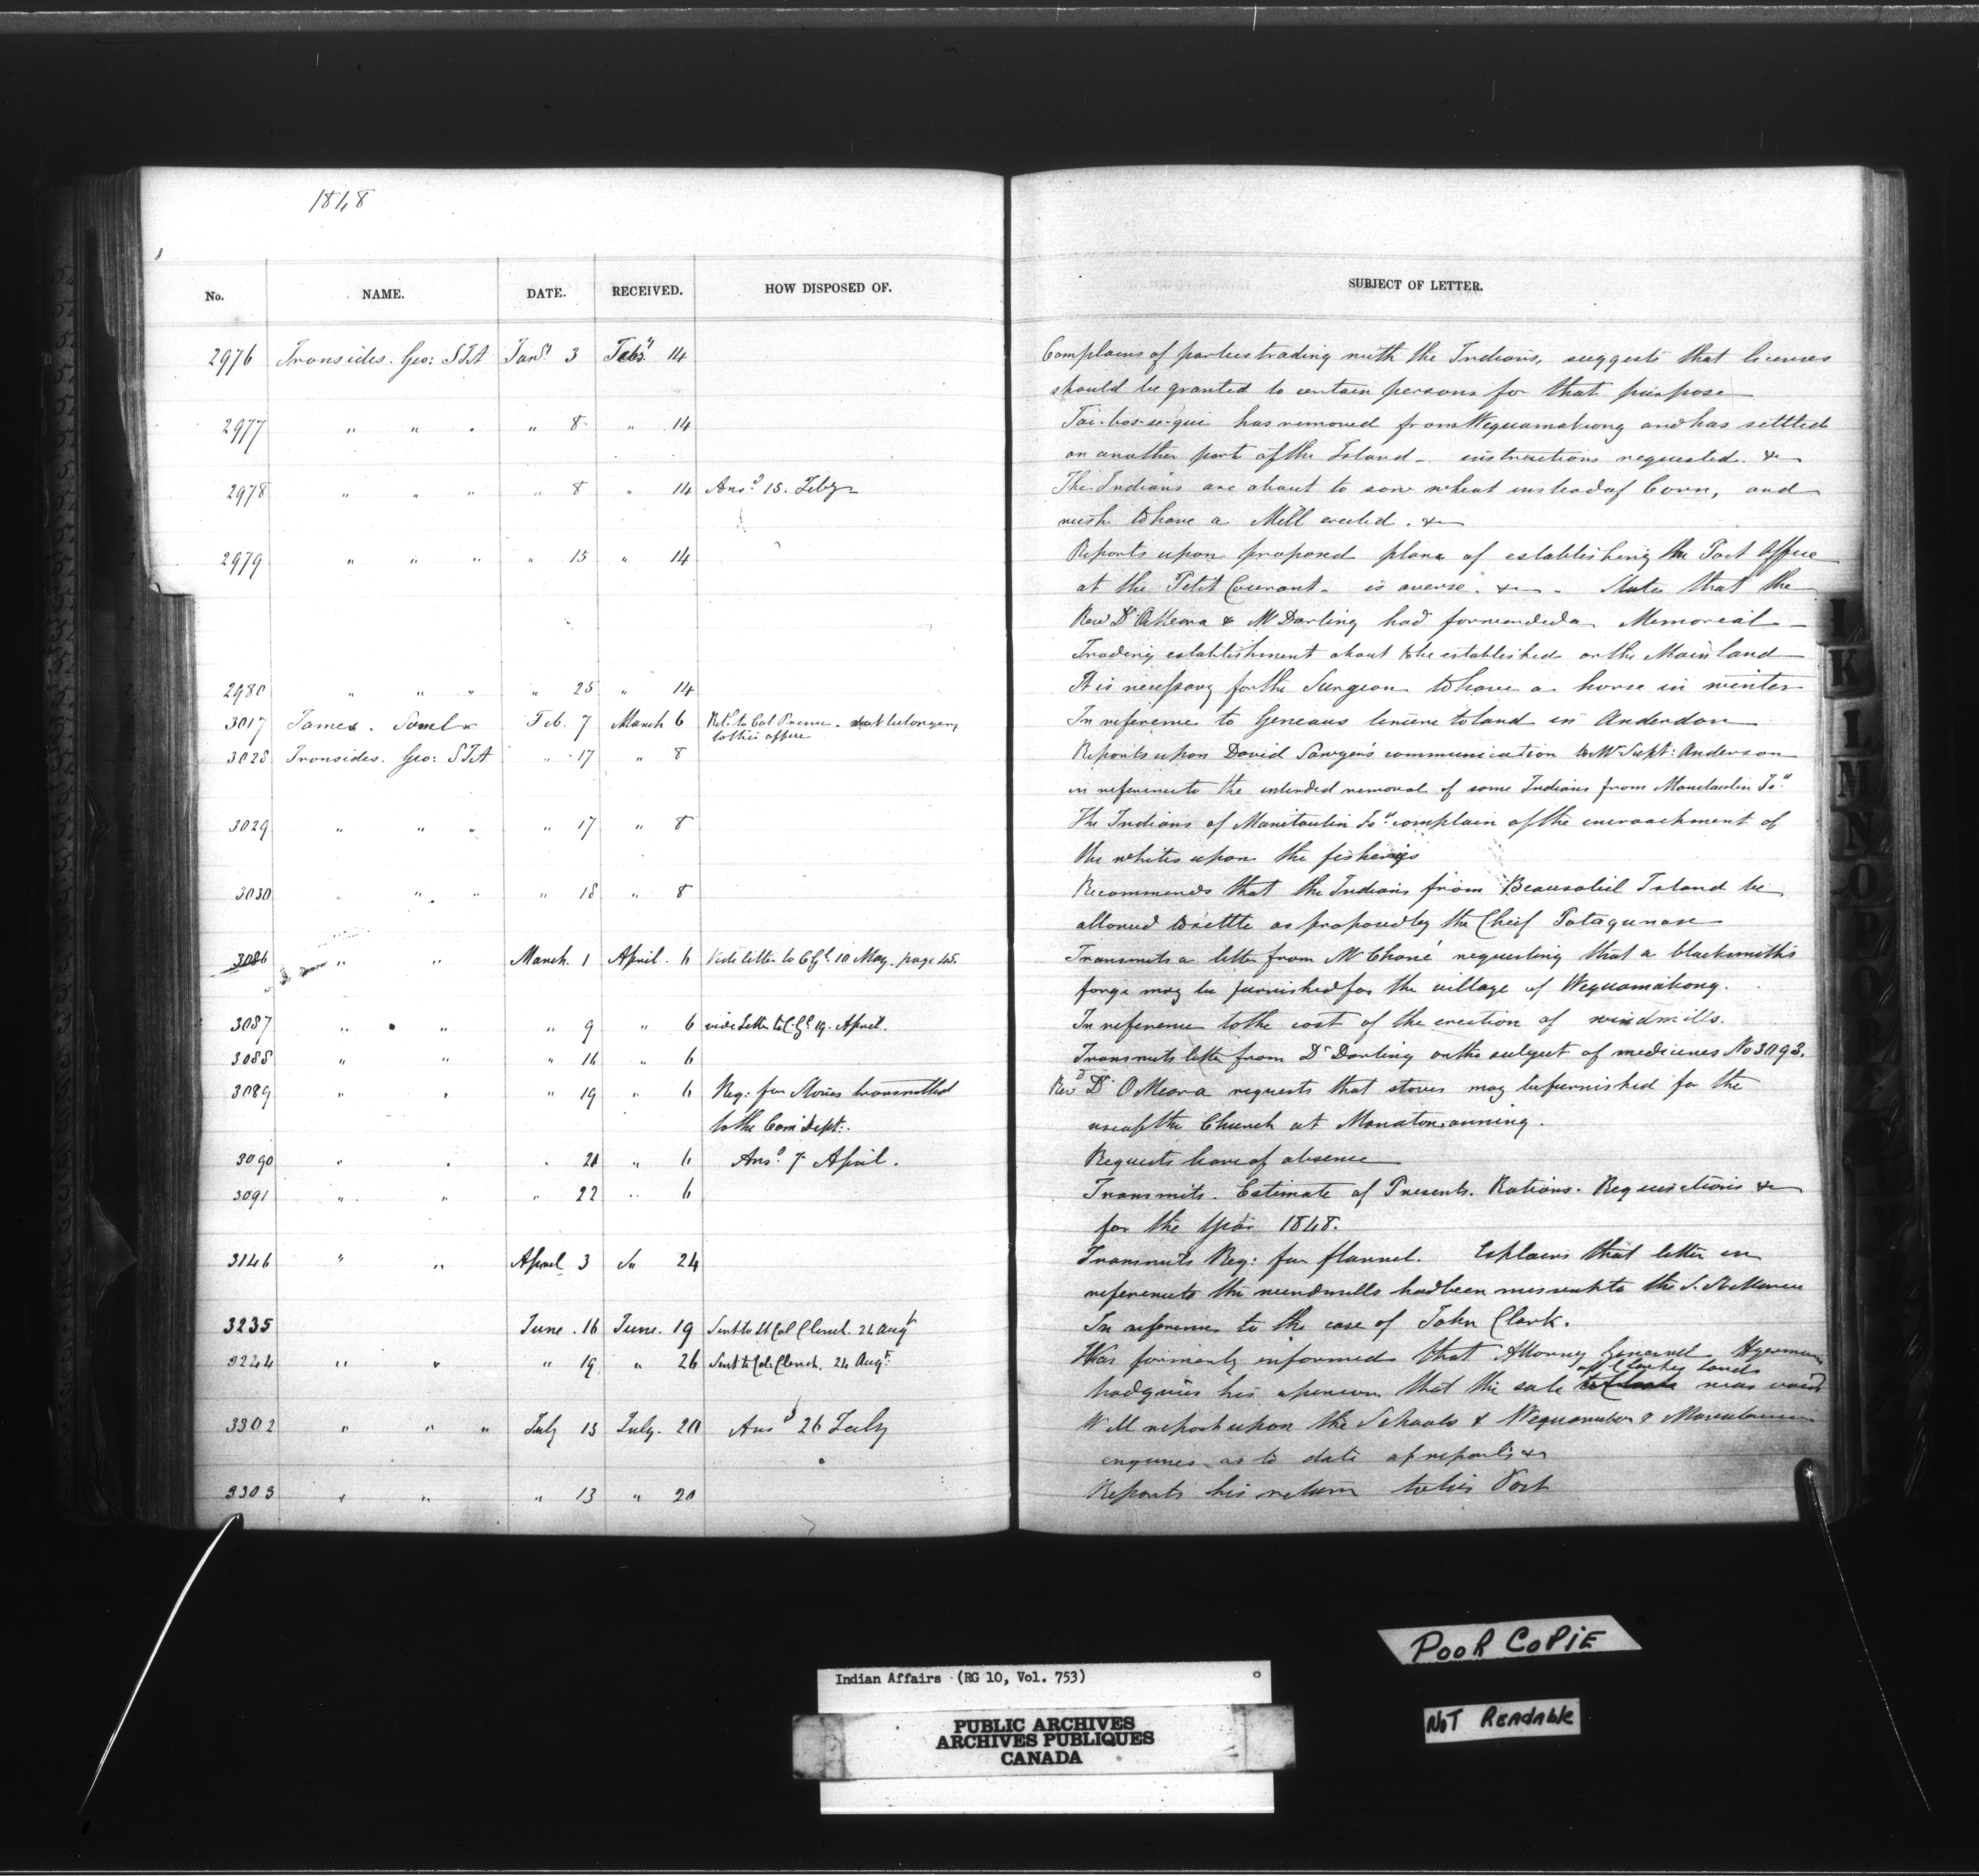 1848
No. NAME. DATE. RECEIVED. HOW DISPOSED OF. SUBJECT OF LETTER.
2976 Ironsides. Geo: SIA Jany 3 Feby 14 Complains of parties trading with the Indians, suggests that licenses
should be granted to certain persons for that purpose
2977 " " " " 8 " 14 Tai-bos-se-gui has removed from Wequamakong and has settled
on another part of the Island - instructions requested. &
2978 " " " " 8 " 14 Ansd 15. Feby The Indians are about to sow wheat instead of Corn, and
wish to have a Mill erected. &
2979 " " " " 15 " 14 Reports upon proposed plan of establishing the Post Office
at the Petit Courant - is averse. & - States that the
Revd Dr OMeara & Mr Darling had forwarded a Memorial -
Trading establishment about to be established on the Main land
2980 " " " " 25 " 14 It is necessary for the Surgeon to have a horse in winter
3017 James. Saml Feb. 7 March 6 Refd to Col Prince - not belonging
to this office
In reference to Geneaus lincere to land in Anderdon
3028 Ironsides. Geo: SIA " 17 " 8 Reports upon David Sawyer's communication to Mr Supt: Anderson
in reference to the intended removal of some Indians from Manitoulin Isd
3029 " " " " 17 " 8 The Indians of Manitoulin Isd complain of the encroachment of
the whites upon the fisheries
3030 " " " " 18 " 8 Recommends that the Indians from Beausoliel Island be
allowed to settle as proposed by the Chief Tatagunase
3086 " " March. 1 April. 6 Vide letter to C Gl 10 May. page 45. Transmits a letter from Mr Choné requesting that a blacksmith's
forge may be furnished for the village of Wequamikong.
3087 " " " 9 " 6 vide Letter to C. Gl 19. April. In reference to the cost of the erection of windmills.
3088 " " " 16 " 6 Transmits letter from Dr Darling on the subject of medicines No 3093.
3089 " " " 19 " 6 Req: for Stoves transmitted Revd Dr OMeara requests that stoves may be furnished for the
to the Com: Dept:. use of the Church at Manatowanning.
3090 " " " 21 " 6 Ansd 7 April. Requests leave of absence
3091 " " " 22 " 6 Transmits. Estimate of Presents. Rations. Requisitions &
for the Year 1848.
3146 " " April 3 Do 24 Transmits Req: for flannel. Explains that letter in
reference to the windmills had been missent to the S. Ste Marie
3235 June. 16 June. 19 Sent to Lt Col Clench. 24 Augt In reference to the case of John Clark.
3244 " " " 19 " 26 Sent to Col: Clench. 24 Augt: Was formerly informed that Attorney General
had given his opinion that the sale of Clarkes lands was void
3302 " " " July 13 July. 20 Ansd 26 July Will report upon the Schools &
enquires as to date of reports &
3303 " " " 13 " 20 Reports his return to his Post
I
K
L
M
N
O
P
Q
Indian Affairs (RG 10, Vol. 753)
PUBLIC ARCHIVES
ARCHIVES PUBLIQUES
CANADA
POOR COPIE
NOT READABLE